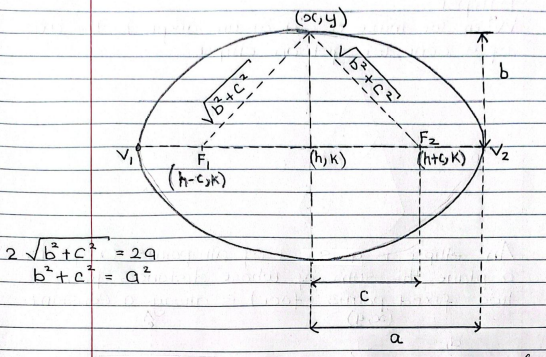 (x,y)
√b²+c²
√b²+c²
b
V₁
F₁
(h-c,k)
(h,k)
F₂
(h+c,k)
V₂
2√b²+c² = 2a
b²+c² = a²
c
a